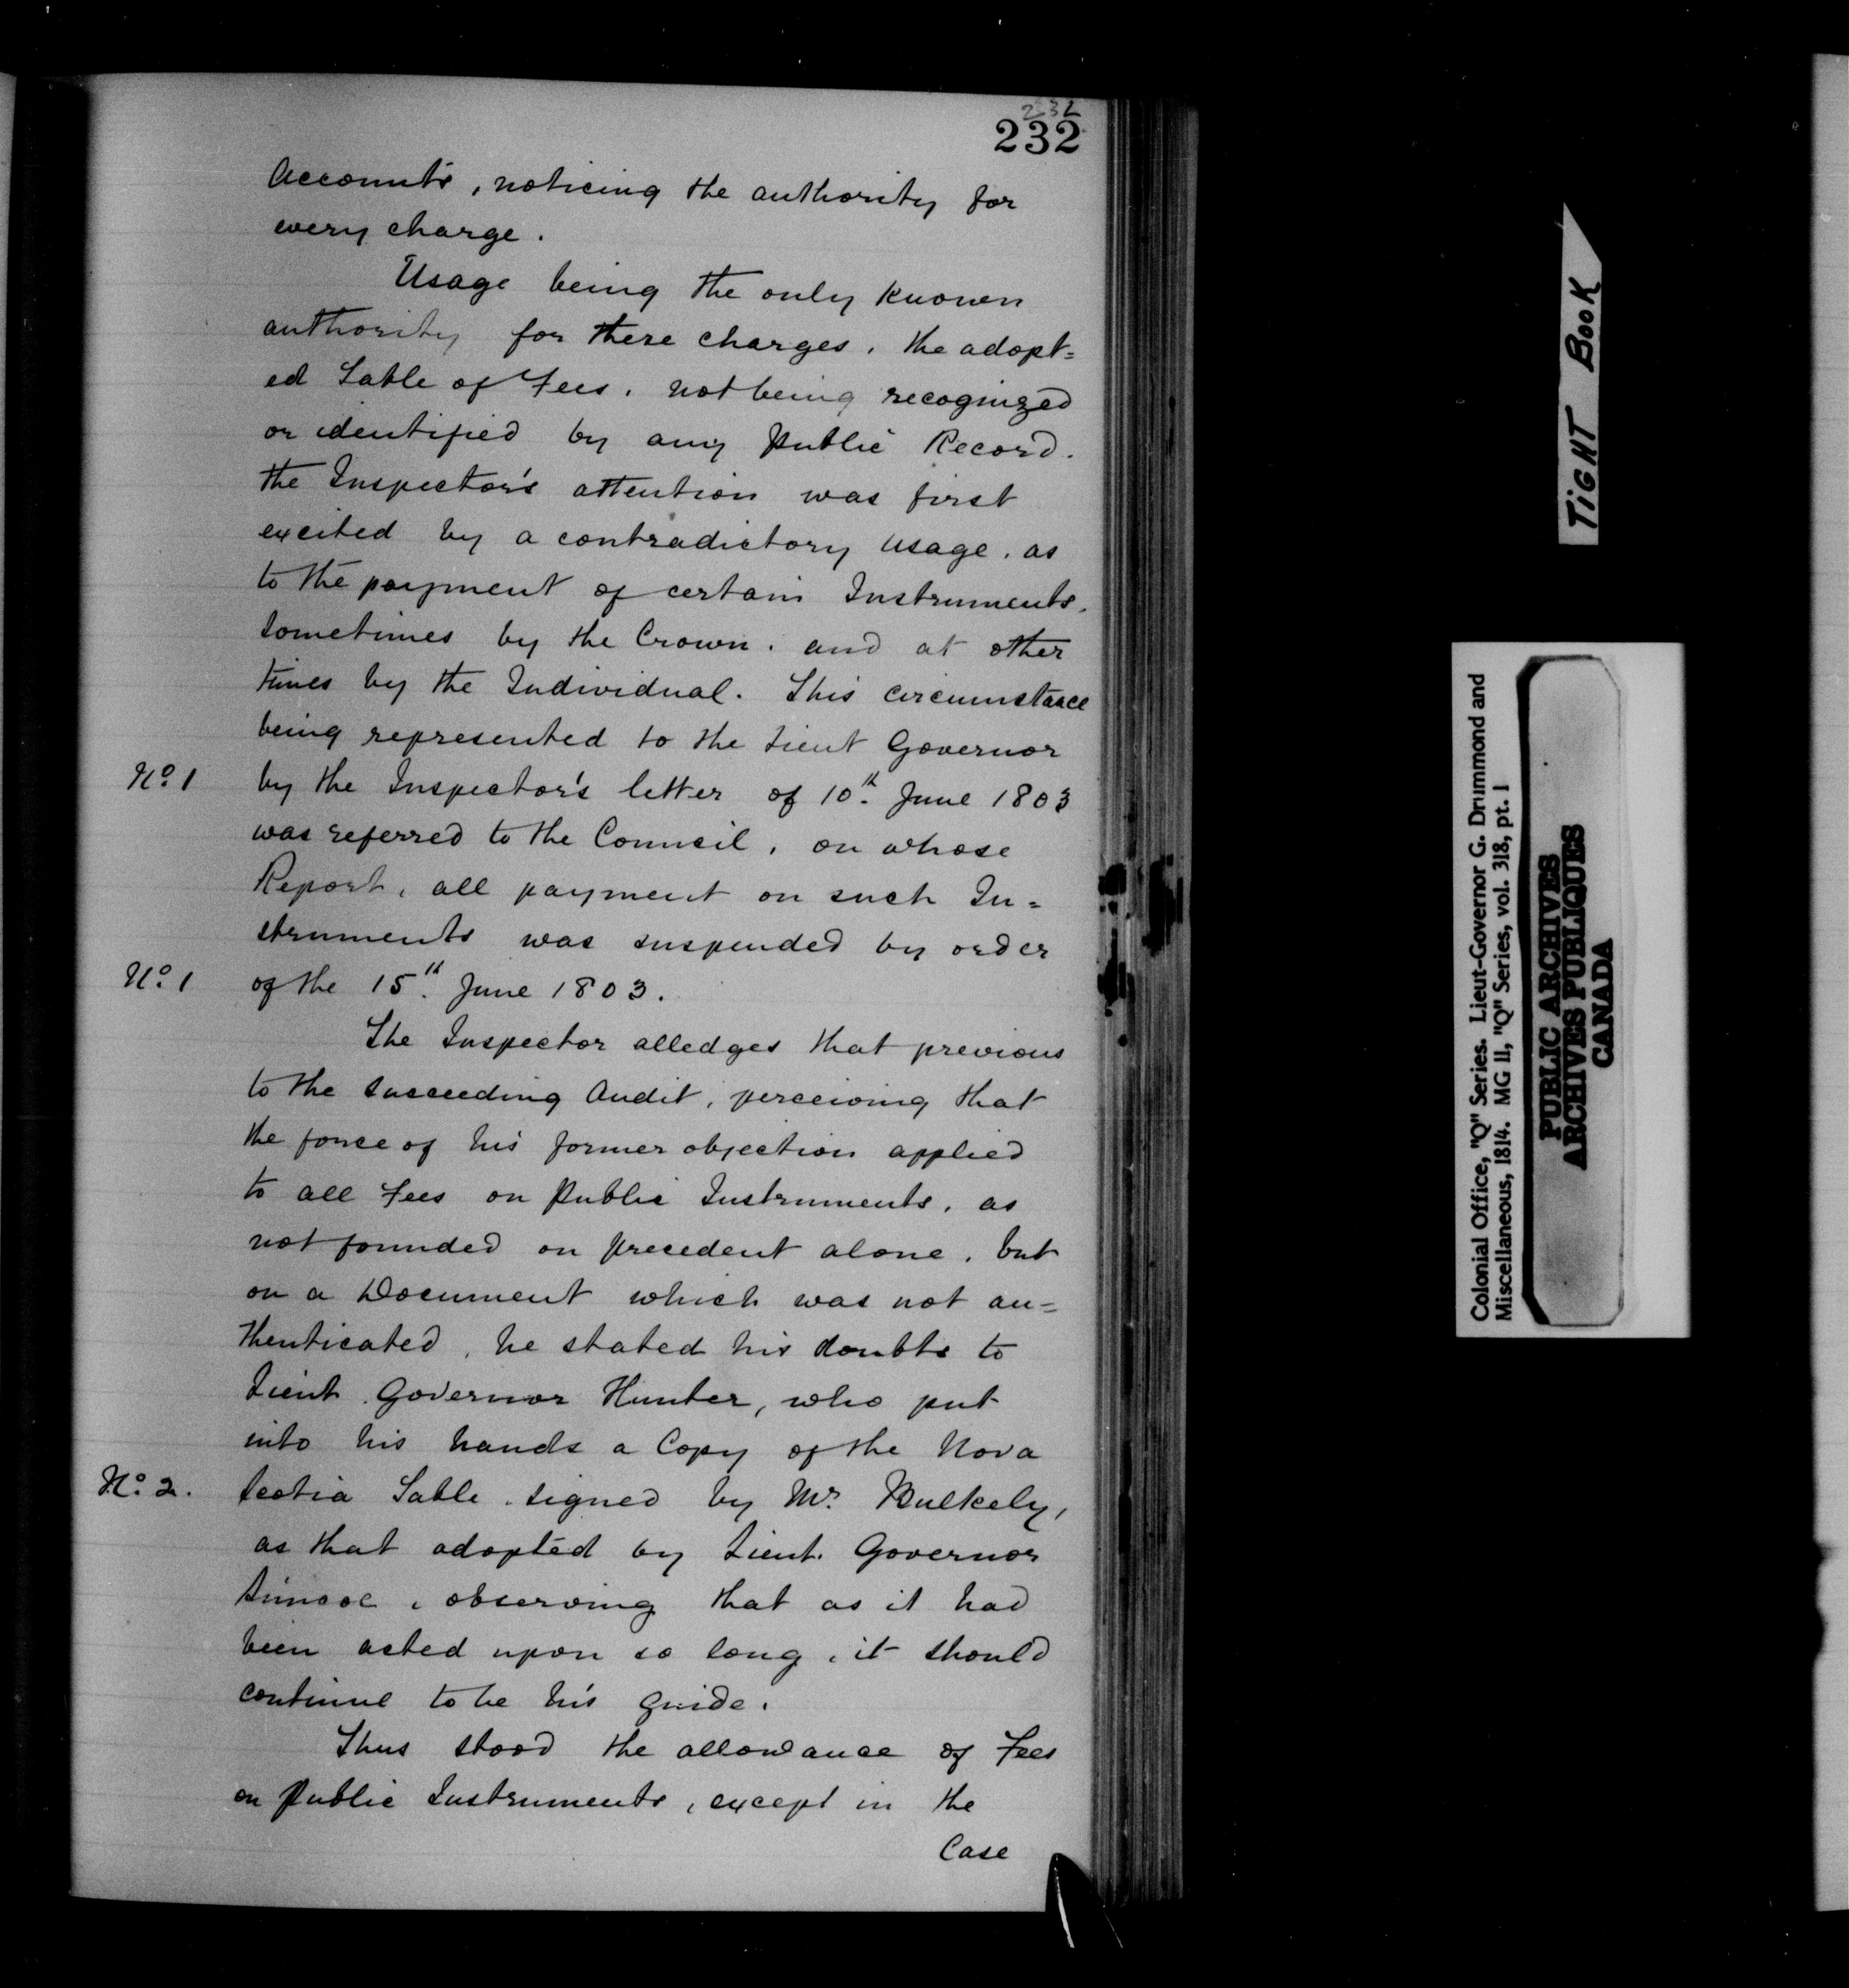 232
232
Accounts, noticing the authority for
every charge.
Usage being the only known
authority for these charges, the adopt=
ed Table of Fees, not being recognized
or identified by any public Record.
the Inspector's attention was first
excited by a contradictory usage, as
to the payment of certain Instruments,
sometimes by the Crown, and at other
times by the Individual. This circumstance
being represented to the Lieut Governor
No. 1 by the Inspector's letter of 10th June 1803
was referred to the Council, on whose
Report, all payment on such In=
struments was suspended by order
No. 1 of the 15th June 1803.
The Inspector alledges that previous
to the succeeding Audit, perceiving that
the force of his former objection applied
to all Fees on Public Instruments, as
not founded on precedent alone, but
on a Document which was not au=
thenticated, he stated his doubts to
Lieut Governor Hunter, who put
into his hands a Copy of the Nova
No. 2. Scotia Table signed by Mr. Bulkely,
as that adopted by Lieut. Governor
Simcoe, observing that as it had
been acted upon so long, it should
continue to be his guide.
Thus stood the allowance of Fees
on Public Instruments, except in the
Case
TIGHT BOOK
Colonial Office, "Q" Series. Lieut-Governor G. Drummond and
Miscellaneous, 1814. MG 11, "Q" Series, vol. 318, pt. 1
PUBLIC ARCHIVES
ARCHIVES PUBLIQUES
CANADA